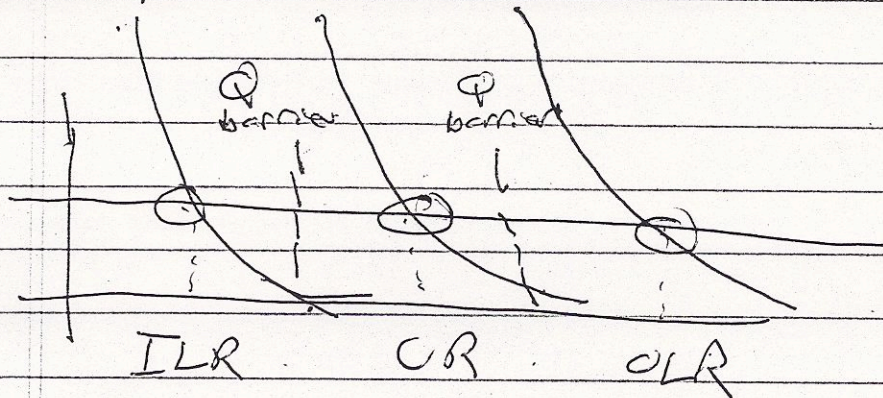 Q Q
barrier barrier
ILR CR OLR